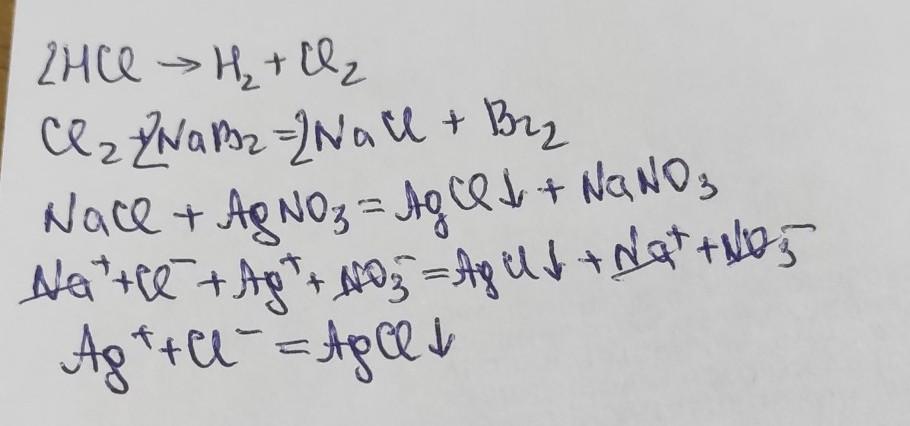 2HCl → H₂ + Cl₂
Cl₂ + 2NaBr = 2NaCl + Br₂
NaCl + AgNO₃ = AgCl↓ + NaNO₃
Na⁺ + Cl⁻ + Ag⁺ + NO₃⁻ = AgCl↓ + Na⁺ + NO₃⁻
Ag⁺ + Cl⁻ = AgCl↓